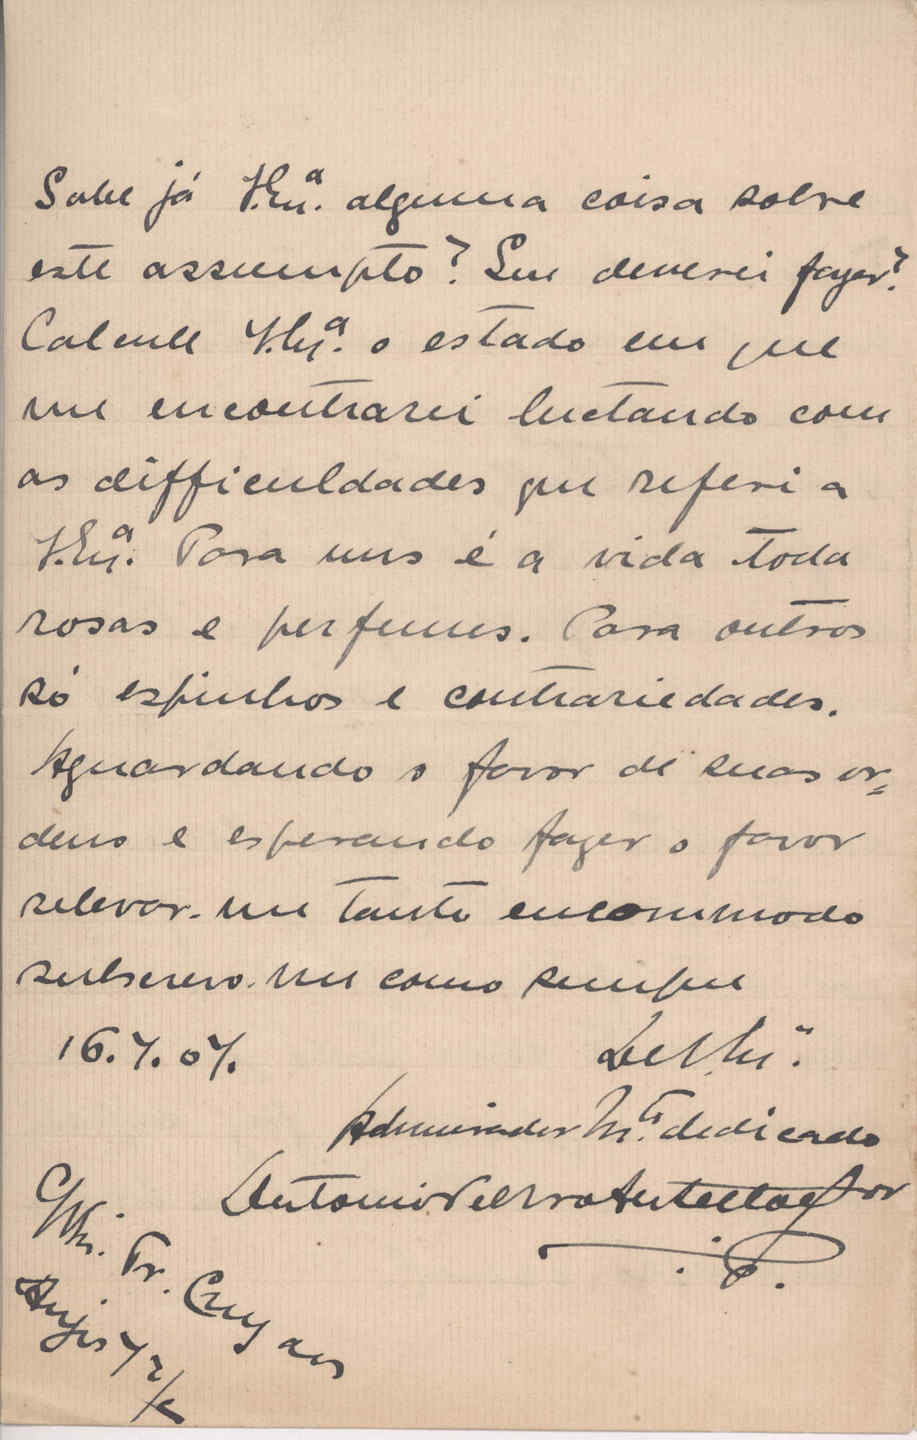 Sabe já V.Exª. alguma coisa sobre
este assumpto? Que deverei fazer?
Calcule V.Exª. o estado em que
me encontrarei luctando com
as difficuldades que referi a
V.Exª. Para uns é a vida toda
rosas e perfumes. Para outros
só espinhos e contrariedades.
Aguardando o favor de suas or=
dens e esperando fazer o favor
relevar-me tanto encommodo
subscrevo-me como sempre
16.7.07.
De V.Exª.
Admirador M.to dedicado
Antonio
Tr. Cruz aos
Anjos 72